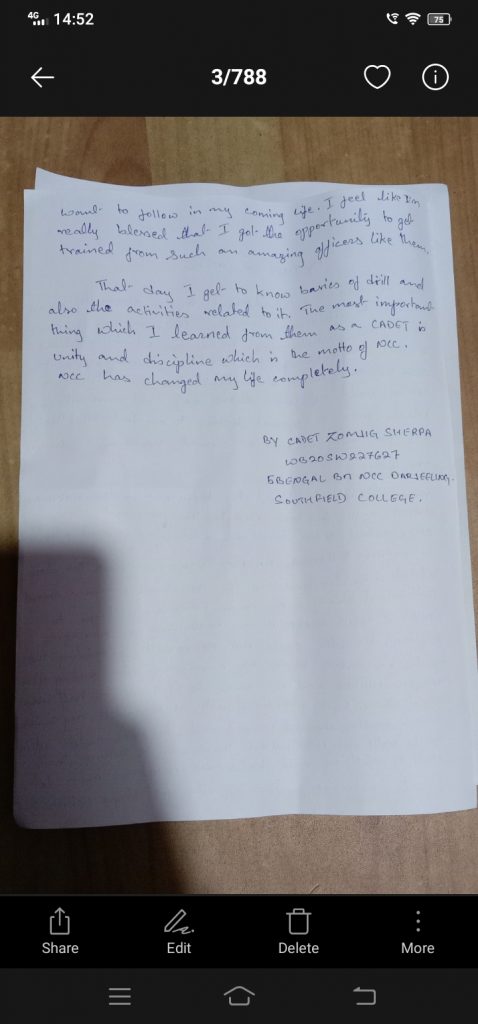 4G 14:52 75
3/788
want to follow in my coming life. I feel like I'm
really blessed that I got the opportunity to get
trained from such an amazing officers like them.
That day I get to know basics of drill and
also the activities related to it. The most important
thing which I learned from them as a CADET is
unity and discipline which is the motto of NCC.
NCC has changed my life completely.
BY CADET ZOMJIG SHERPA
WB20SW227627
5BENGAL BN NCC DARJEELING.
SOUTHFIELD COLLEGE.
Share Edit Delete More